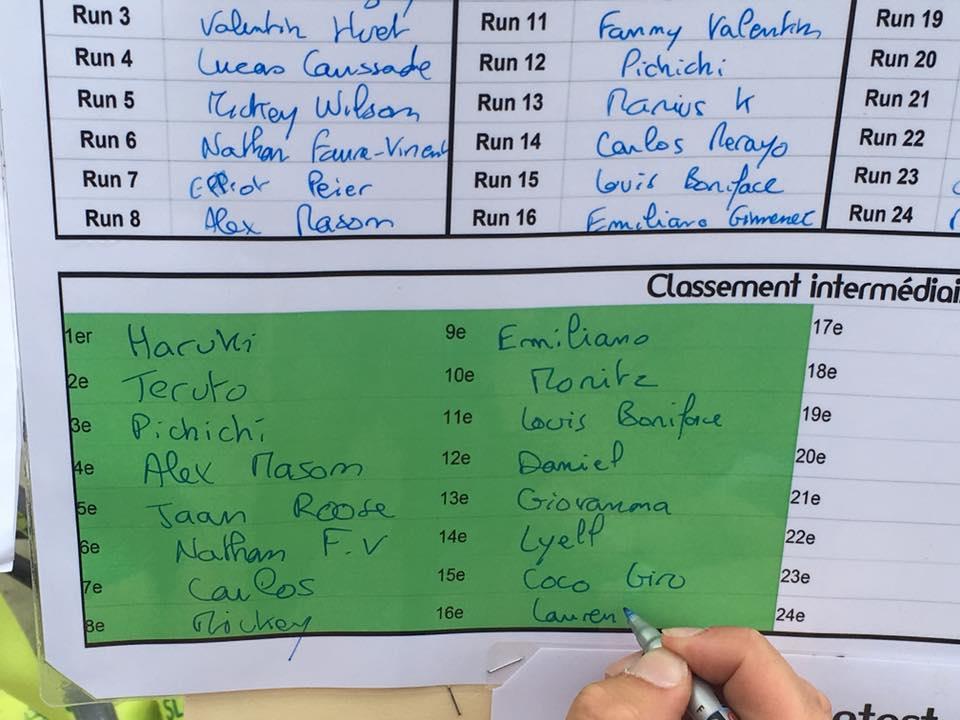 Run 3 Valentin Huet Run 11 Fanny Valentin Run 19
Run 4 Lucas Caussade Run 12 Pichichi Run 20
Run 5 Mickey Wilson Run 13 Marius K Run 21
Run 6 Nathan Faure-Vincent Run 14 Carlos Merayo Run 22
Run 7 Elliot Peier Run 15 Louis Boniface Run 23
Run 8 Alex Mason Run 16 Emiliano Gimenez Run 24
Classement intermédiai
1er Haruki 9e Emiliano 17e
2e Teruto 10e Moritz 18e
3e Pichichi 11e Louis Boniface 19e
4e Alex Mason 12e Daniel 20e
5e Jaan Roose 13e Giovanna 21e
6e Nathan F.V 14e Lyell 22e
7e Carlos 15e Coco Giro 23e
8e Mickey 16e Lauren 24e
SL